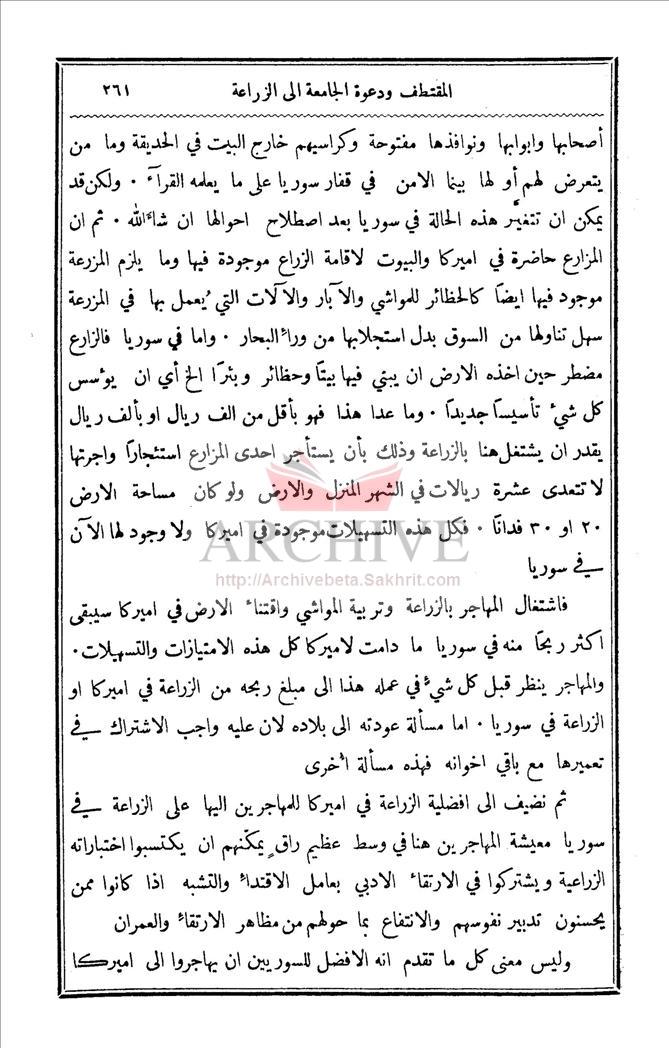 المقتطف ودعوة الجامعة الى الزراعة ٢٦١
أصحابها وابوابها ونوافذها مفتوحة وكراسيهم خارج البيت في الحديقة وما من
يتعرض لهم أو لها بينما الامن في قفار سوريا على ما يعلمه القرآء ٠ ولكن قد
يمكن ان تتغيّر هذه الحالة في سوريا بعد اصطلاح احوالها ان شاء الله ٠ ثم ان
المزارع حاضرة في اميركا والبيوت لاقامة الزراع موجودة فيها وما يلزم المزرعة
موجود فيها ايضًا كالحظائر للمواشي والآبار والآلات التي يُعمل بها في المزرعة
سهل تناولها من السوق بدل استجلابها من وراء البحار ٠ واما في سوريا فالزارع
مضطر حين اخذه الارض ان يبني فيها بيتًا وحظائر وبئرًا الخ أي ان يوسس
كل شيء تأسيسًا جديدًا ٠ وما عدا هذا فهو بأقل من الف ريال او بألف ريال
يقدر ان يشتغل هنا بالزراعة وذلك بأن يستأجر احدى المزارع استئجارًا واجرتها
لا تتعدى عشرة ريالات في الشهر المنزل والارض ولو كان مساحة الارض
٢٠ او ٣٠ فدانًا ٠ فكل هذه التسهيلات موجودة في اميركا ولا وجود لها الآن
في سوريا
فاشتغال المهاجر بالزراعة وتربية المواشي واقتناء الارض في اميركا سيبقى
اكثر ربحًا منه في سوريا ما دامت لاميركا كل هذه الامتيازات والتسهيلات ٠
والمهاجر ينظر قبل كل شيء في عمله هذا الى مبلغ ربحه من الزراعة في اميركا او
الزراعة في سوريا ٠ اما مسألة عودته الى بلاده لان عليه واجب الاشتراك في
تعميرها مع باقي اخوانه فهذه مسألة اخرى
ثم نضيف الى افضلية الزراعة في اميركا للمهاجرين اليها على الزراعة في
سوريا معيشة المهاجرين هنا في وسط عظيم راقٍ يمكّنهم ان يكتسبوا اختباراته
الزراعية ويشتركوا في الارتقاء الادبي بعامل الاقتداء والتشبه اذا كانوا ممن
يحسنون تدبير نفوسهم والانتفاع بما حولهم من مظاهر الارتقاء والعمران
وليس معنى كل ما تقدم انه الافضل للسوريين ان يهاجروا الى اميركا
ARCHIVE
http://Archivebeta.Sakhrit.com